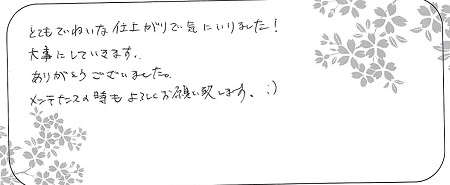 とてもていねいな仕上がりで気にいりました!
大事にしていきます。
ありがとうございました。
メンテナンスの時もよろしくお願い致します。:)